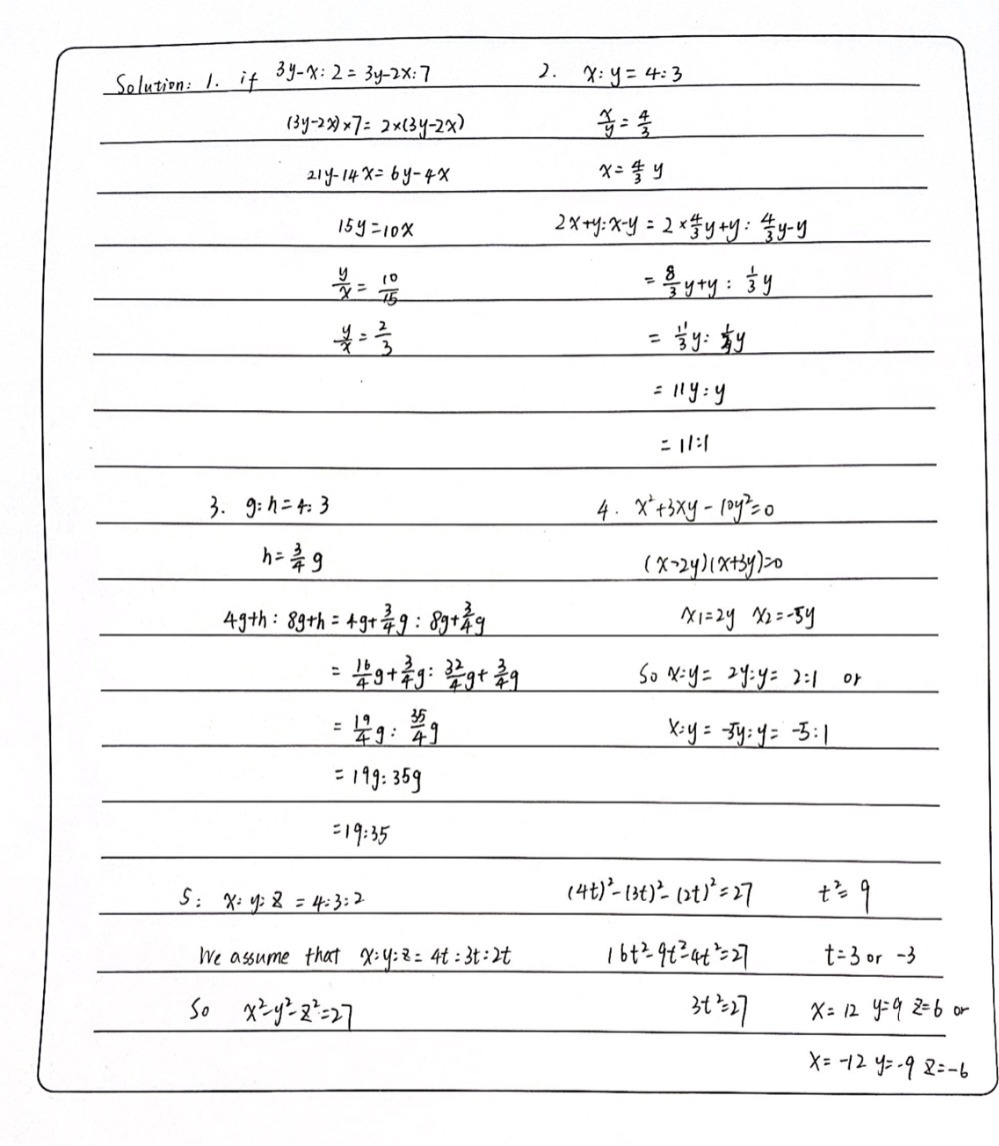 Solution: 1. if 3y-x:2=3y-2x:7
(3y-2x)×7=2×(3y-2x)
21y-14x=6y-4x
15y=10x
y/x=10/15
y/x=2/3
2. x:y=4:3
x/y=4/3
x=4/3 y
2x+y:x-y=2×4/3y+y:4/3y-y
=8/3y+y:1/3y
=11/3y:1/3y
=11y:y
=11:1
3. g:h=4:3
h=3/4 g
4g+h:8g+h=4g+3/4g:8g+3/4g
=16/4g+3/4g:32/4g+3/4g
=19/4g:35/4g
=19g:35g
=19:35
4. x²+3xy-10y²=0
(x-2y)(x+5y)=0
x1=2y x2=-5y
So x:y=2y:y=2:1 or
x:y=-5y:y=-5:1
5: x:y:z=4:3:2
We assume that x:y:z=4t:3t:2t
So x²-y²-z²=27
(4t)²-(3t)²-(2t)²=27
16t²-9t²-4t²=27
3t²=27
t²=9
t=3 or -3
x=12 y=9 z=6 or
x=-12 y=-9 z=-6